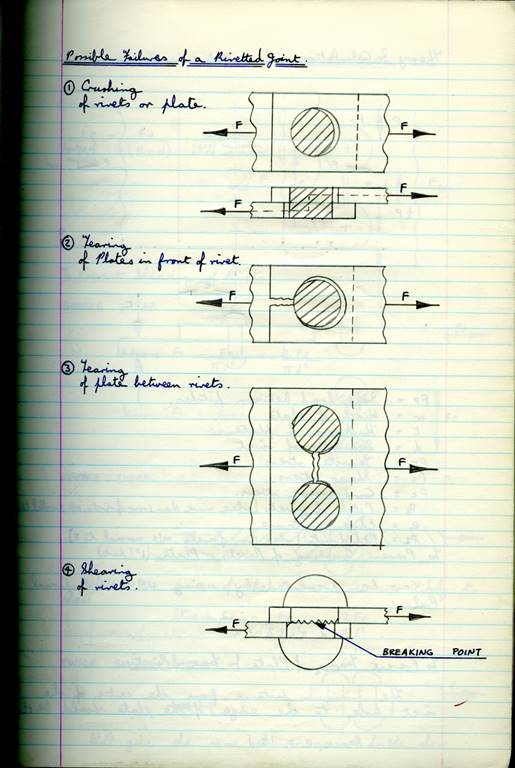 Possible Failures of a Rivetted Joint.
① Crushing
of rivets or plate.
F F
F
F
② Tearing
of Plates in front of rivet.
F F
③ Tearing
of plate between rivets.
F F
④ Shearing
of rivets.
F
F
BREAKING POINT